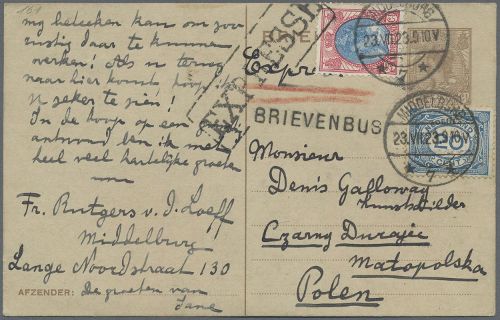 my betecken kan om zoo
rustig daar te kunnen
werken! Als u terug
naar hier komt hoop ik
u zeker te zien!
In de hoop op een
antwoord ben ik met
heel veel hartelijke groeten
Fr. Rutgers v. d. Loeff
Middelburg
Lange Noordstraat 130
AFZENDER: De groeten van
Jane
EXPRESSE
Expres
MIDDELBURG
23.VII.23.9-10V
7
MIDDELBURG
23.VII.23.9-10V
7
BRIEVENBUS
Monsieur
Denis Galloway
Kunstschilder
Czarny Dunajec
Matopolska
Polen